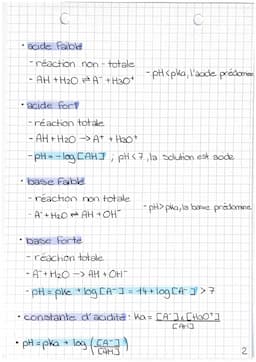 • acide faible
- réaction non-totale
- AH + H2O ⇌ A⁻ + H3O⁺
- pH<pka, l'acide prédomine
• acide fort
- réaction totale
- AH + H2O → A⁺ + H3O⁺
- pH = -log[AH] ; pH<7, la solution est acide
• base faible
- réaction non totale
- A⁻ + H2O ⇌ AH + OH⁻
- pH>pka, la base prédomine
• base forte
- réaction totale
- A⁻ + H2O → AH + OH⁻
- pH = pke + log[A⁻] = 14 + log[A⁻] > 7
• constante d'acidité : Ka = [A⁻]x[H3O⁺] / [AH]
• pH = pka + log ([A⁻] / [AH])
2